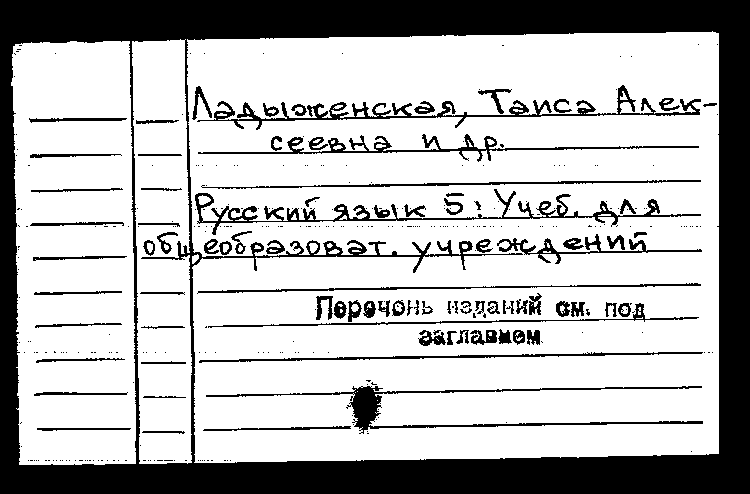 Ладыженская, Таиса Алек-
сеевна и др.
Русский язык 5: Учеб. для
общеобразоват. учреждений
Перечень изданий см. под
заглавием